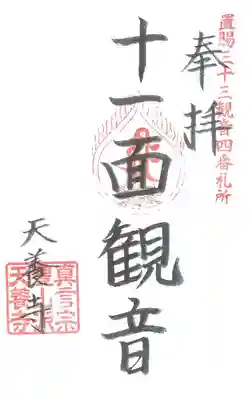 置賜三十三観音四番札所
奉拝
十一面観音
天養寺
真言宗
天養寺